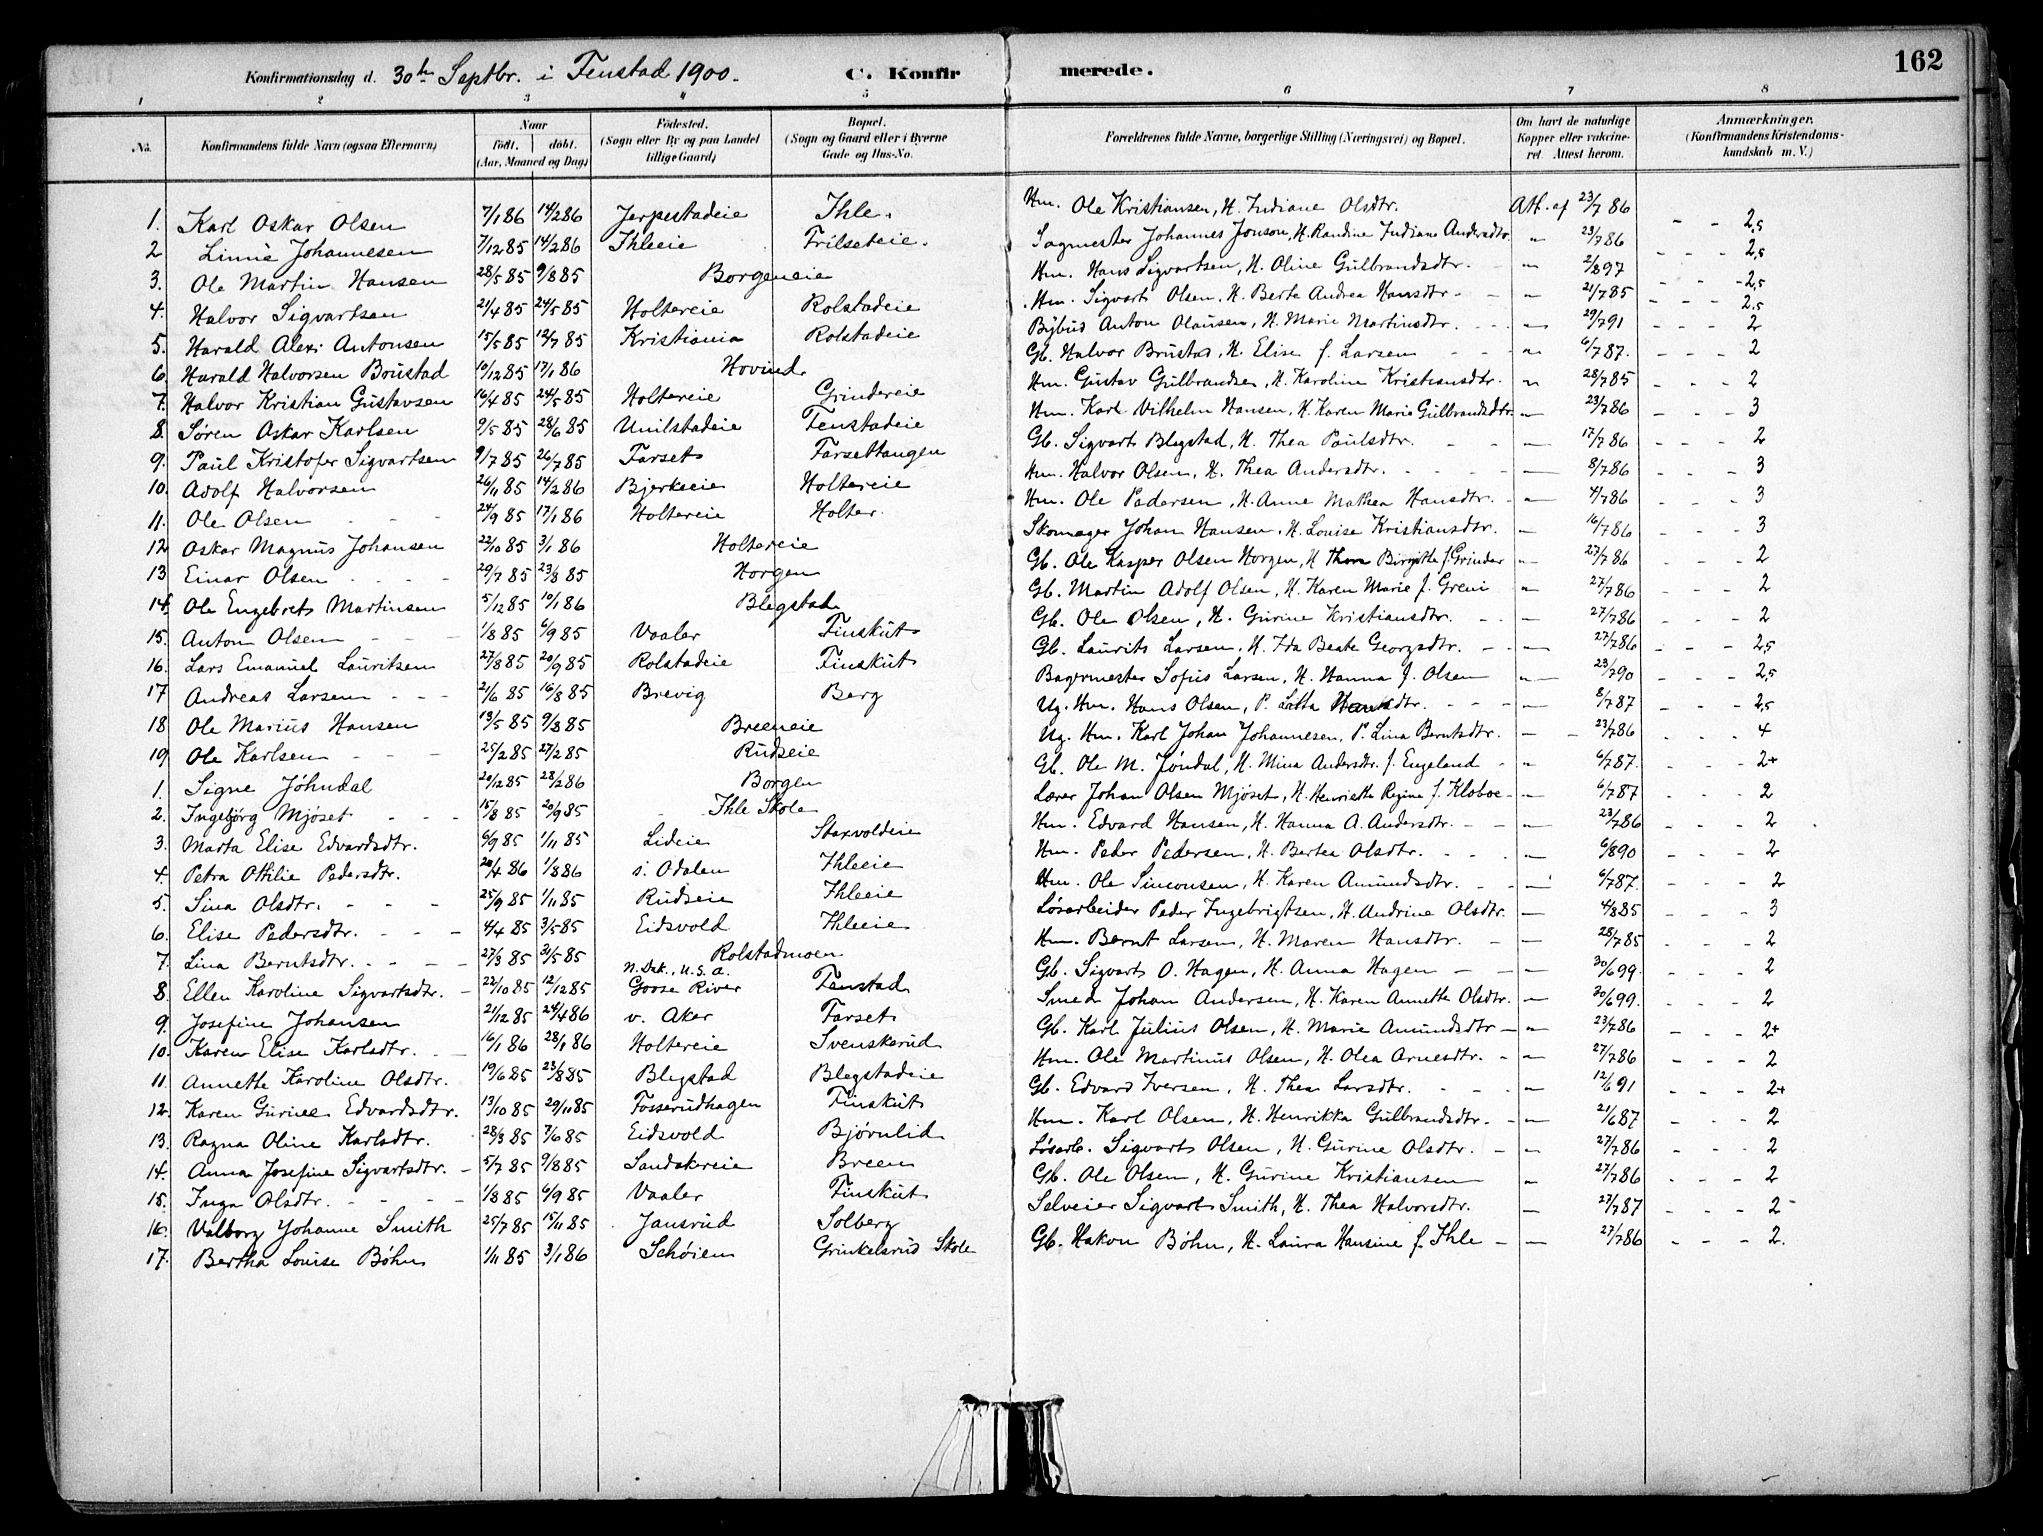 162
Konfirmationsdag d. 30te Septbr. i Fenstad 1900. C. Konfirmerede.
1 2 3 4 5 6 7 8
No. Konfirmandens fulde Navn (ogsaa Efternavn) Naar født. døbt. (Aar, Maaned og Dag) Fødested. (Sogn eller By og paa Landet tillige Gaard) Bopæl. (Sogn og Gaard eller i Byerne Gade og Hus-No. Forældrenes fulde Navne, borgerlige Stilling (Næringsvei) og Bopæl. Om havt de naturlige Kopper eller vakcineret Attest herom. Anmærkninger. (Konfirmandens Kristendomskundskab m. V.)
1. Karl Oskar Olsen 7/1 86 14/2 86 Jerpestadeie Ihle. Hm. Ole Kristiansen, H. Indiane Olsdtr. Att. af 23/7 86 - - 2,5
2 Linné Johannesen 7/12 85 14/2 86 Ihleie Frilseteie. Sagmester Johannes Jonson, H. Randine Indiane Andersdtr. " 23/7 86 - - - 2,5
3. Ole Martin Hansen 28/5 85 9/8 85 Borgeneie Hm. Hans Sigvartsen, H. Oline Gulbrandsdtr. - " 2/8 97 - - - 2,5
4. Halvor Sigvartsen 21/4 85 24/5 85 Holtereie Rolstadeie Hm. Sigvart Olsen, H. Berte Andrea Hansdtr - - " 21/7 85 - - - 2,5
5. Harald Alex. Antonsen 15/5 85 12/7 85 Kristiania Rolstadeie Bybud Anton Olausen, H. Marie Martinsdtr. - - " 29/7 91 - - - 2
6. Harald Halvorsen Brustad 10/12 85 17/1 86 Hovind Gb. Halvor Brustad, H. Elise f. Larsen - - " 6/7 87. - - - 2
7. Halvor Kristian Gustavsen 16/4 85 24/5 85 Holtereie Grindereie Hm. Gustav Gulbrandsen, H. Karoline Kristiansdtr. " 28/7 85 - - - 2
8. Søren Oskar Karlsen 9/5 85 28/6 85 Unilstadeie Fenstadeie Hm. Karl Vilhelm Hansen, H. Karen Marie Gulbrandsdtr " 23/7 86 - - - 3
9. Paul Kristofer Sigvartsen 9/7 85 26/7 85 Farset Farsettangen Gb. Sigvart Blegstad, H. Thea Paulsdtr. - - - 17/7 86 - - - 2
10. Adolf Halvorsen 26/11 85 14/2 86 Bjerkeeie Holtereie Hm. Halvor Olsen, H. Thea Andersdtr. - - - 8/7 86 - - - 3
11. Ole Olsen - - - 24/9 85 17/1 86 Holtereie Holter. Hm. Ole Pedersen, H. Anne Mathea Hansdtr. - - 4/7 86 - - - 3
12 Oskar Magnus Johansen 22/10 85 3/1 86 Holtereie Skomager Johan Hansen, H. Louise Kristiansdtr. - 16/7 86 - - - 3
13 Einar Olsen - - - 29/7 85 23/8 85 Horgen Gb. Ole Kasper Olsen Horgen, H Thora Birgitte f. Grinder " 27/7 86 - - - 2
14. Ole Engebret Martinsen 5/12 85 10/1 86 Blegstad Gb. Martin Adolf Olsen, H. Karen Marie f. Greni " 27/7 86 - - - 2
15. Anton Olsen - - - 1/8 85 6/9 85 Vaaler Finskut Gb. Ole Olsen, H. Gurine Kristiansdtr. - - - 27/7 86 - - - 2
16. Lars Emanuel Lauritsen 27/8 85 20/9 85 Rolstadeie Finskut Gb. Laurits Larsen, H. Ida Beate Georgsdtr. - - 27/7 86 - - - 2,5
17 Andreas Larsen - - - 21/6 85 16/8 85 Brevig Berg Bagermester Sofus Larsen, H. Hanna f. Olsen " 23/7 90 - - - 2,5
18 Ole Marius Hansen 13/5 85 9/8 85 Breeneie Ug. Hm. Hans Olsen, P. Hansdtr. - - - 8/7 87 - - - 2,5
19 Ole Karlsen - - - 25/2 85 27/2 85 Rudseie Ug. Hm. Karl Johan Johannesen, P. Lina Berntsdtr. - - 23/7 86 - - - 4
1. Signe Jöhndal 20/12 85 28/2 86 Borgen Gb. Ole M. Jöndal, H. Mina Andersdtr. f. Engeland - " 6/7 87. - - - 2+
2. Ingebjörg Mjöset - - - 15/8 85 20/9 85 Ihle Skole Lærer Johan Olsen Mjöset, H. Henriette Regine f. Kloboe - " 6/7 87 - - - 2
3. Marta Elise Edvardsdtr. 6/9 85 1/11 85 Lideie Staxvoldeie Hm. Edvard Hansen, H. Hanna A. Andersdtr. - - " 23/7 86 - - - 2
4. Petra Ottilie Pedersdtr. 20/4 86 1/8 86 s. Odalen Ihleeie Hm. Peder Pedersen, H. Bertea Olsdtr. - - - 6/8 90 - - - 2
5. Sina Olsdtr. - - - 25/9 85 1/11 85 Rudseie Ihleeie Hm. Ole Simonsen, H. Karen Amundsdtr. - - - 6/7 87. - - - 2
6. Elise Pedersdtr. - - - 4/4 85 3/5 85 Eidsvold Ihleeie Løsarbeider Peder Ingebrigtsen, H. Andrine Olsdtr. - 4/8 85 - - - 3
7. Lina Berntsdtr. - - - 27/3 85 31/5 85 Rolstadmoen Hm. Bernt Larsen, H. Maren Hansdtr. - - 28/7 85 - - - 2
8. Ellen Karoline Sigvartsdtr. - 22/10 85 12/12 85 N. Dak., U.S.A. Goose River Fenstad Gb. Sigvart O. Hagen, H. Anna Hagen - - - 30/6 99. - - - 2
9. Josefine Johansen 21/12 85 24/4 86 v. Aker Farset Smed Johan Andersen, H. Karen Annette Olsdtr. - 30/6 99. - - - 2
10. Karen Elise Karlsdtr. - 16/1 86 28/1 86 Holtereie Svenskerud Gb. Karl Julius Olsen, H. Marie Amundsdtr - " 23/7 86 - - - 2+
11. Annette Karoline Olsdtr. 19/6 85 23/8 85 Blegstad Blegstadeie Hm. Ole Martinus Olsen, H. Olea Arnesdtr. - - 27/7 86 - - - 2
12. Karen Gurine Edvardsdtr. 13/10 85 29/11 85 Fosserudhagen Finskut Gb. Edvard Iversen, H. Thea Larsdtr. - - " 12/6 91 - - - 2+
13. Ragna Oline Karlsdtr. 28/3 85 7/6 85 Eidsvold Bjørnlid Hm. Karl Olsen, H. Henrikka Gulbrandsdtr. - - 21/6 87 - - - 2
14. Anna Josefine Sigvartsdtr. - 5/7 85 9/8 85 Sandakereie Breen Løsarb. Sigvart Olsen, H. Gurine Olsdtr. - - 27/7 86 - - - 2
15. Inga Olsdtr. - - - 1/8 85 6/9 85 Vaaler Finskut Gb. Ole Olsen, H. Gurine Kristiansen " 27/7 86 - - - 2
16. Valborg Johanne Smith 25/7 85 15/11 85 Jansrud Solberg Selveier Sigvart Smith, H. Thea Halvorsdtr. - 27/7 87 - - - 2-
17. Bertha Louise Bøhn 1/11 85 3/1 86 Schøien Grinkelsrud Skole Gb. Hakon Bøhn, H. Laura Hansine f. Ihle - - 27/7 86 - - - 2.